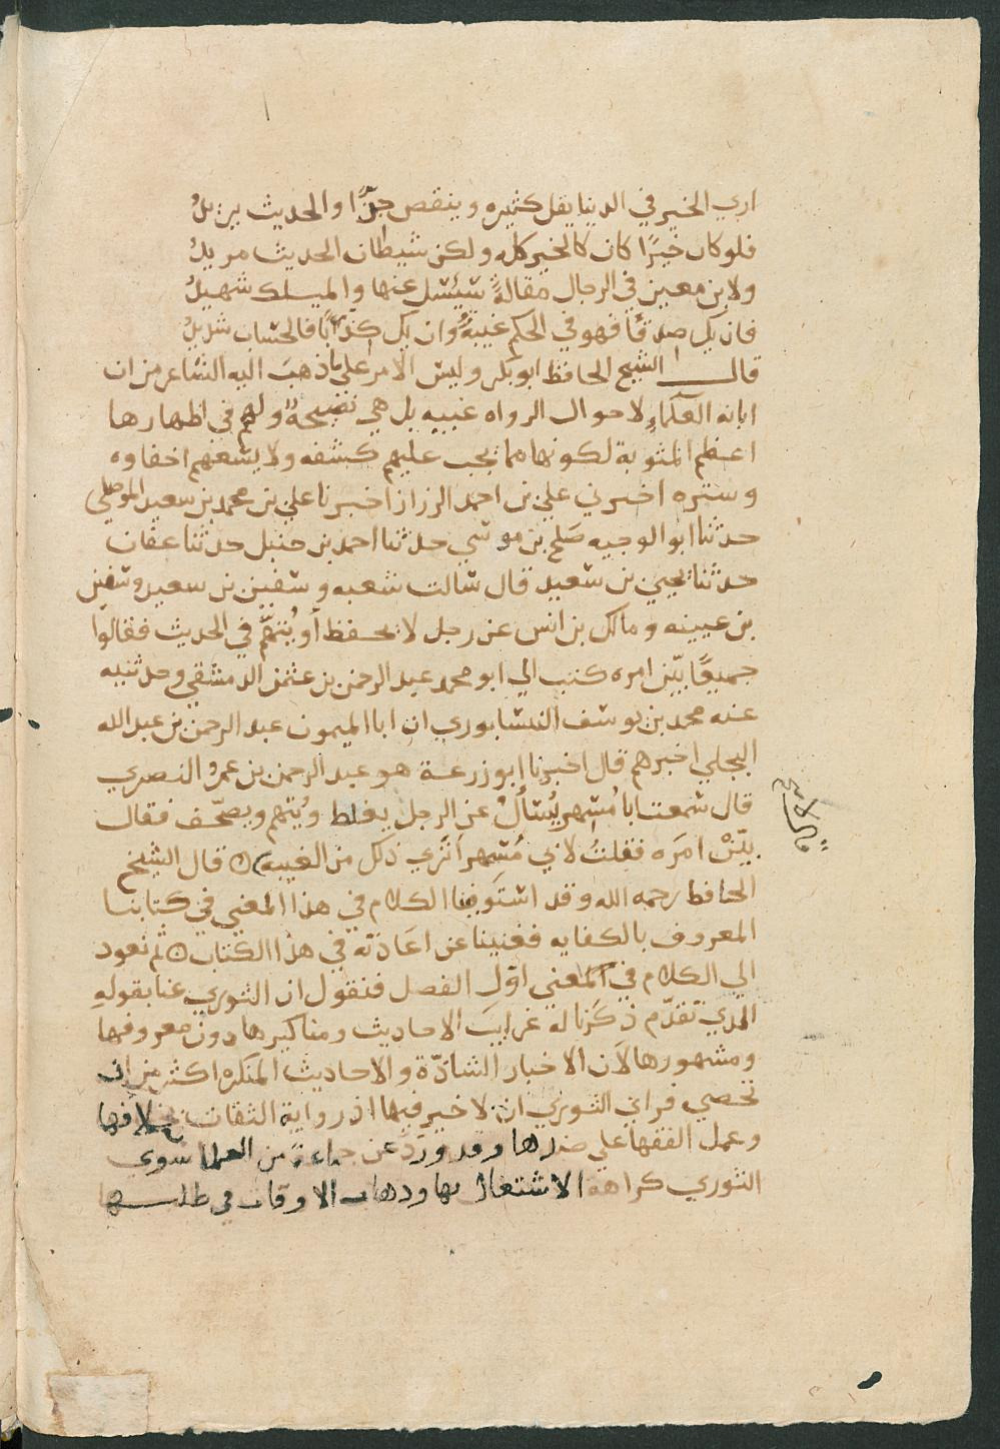 اري الخير في الدنيا يقل كثيره وينقص جدًّا والحديث يزيدُ
فلو كان خيرًا كان كالخير كله ولكن شيطان الحديث مريدُ
ولابن معين في الرجال مقالةٌ سيُسئل عنها والمليك شهيدُ
فان يكُ صدقًا فهو في الحكم غيبةٌ وان يكُ كذبًا فالحساب شديدُ
قال الشيخ الحافظ ابو بكر وليس الامر علي ما ذهبَ اليه الشاعر من ان
ابانه العلماءِ لاحوال الرواه غيبه بل هي نصيحةٌ ولهم في اظهارها
اعظم المثوبة لكونها مما يجب عليهم كشفه ولا يسعهم اخفاوه
وستره اخبرني علي بن احمد الرزاز اخبرنا علي بن محمد بن سعيد الموصلي
حدثنا ابو الوجيه صَلح بن موسي حدثنا احمد بن حنبل حدثنا عفان
حدثنا يحيي بن سعيد قال سالت شعبه وسفين بن سعيد وسفين
بن عيينه ومالك بن انس عن رجل لا يحفظ أو يُتهَّم في الحديث فقالوا
جميعًا بيّن امره كتب الي ابو محمد عبد الرحمن بن عثمن الدمشقي وحدثنيه
عنه محمد بن يوسف النيسابوري ان ابا الميمون عبد الرحمن بن عبد الله
البجلي اخبرهم قال اخبرنا ابو زرعة هو عبد الرحمن بن عمرُو النصري
قال سمعت ابا مُسهر يُسئلُ عن الرجل يغلط ويُتهم ويصحّف فقال
بيّنْ امرَه فقلتُ لابي مُسهر اَترَي ذلك من الغيبه قال الشيخ
الحافظ رحمه الله وقد استَوفينا الكلام في هذا المعني في كتابنا
المعروف بالكفايه فغنينا عن اعَادته في هذا الكتاب ثم نعود
الي الكلام في المعني اوّل الفصل فنقول ان الثوري عنا بقوله
الذي تقدّم ذكرنا له غرايبَ الاحاديث ومناكيرها دون معروفها
ومشهورها لاَن الاخبار الشاذّة والاحاديث المنكره اكثر من ان
تحصي فراي الثوري ان لا خير فيها اذ رواية الثقات بخلافها
وعمل الفقها علي ضدها وقد ورَدَ عن جماعة من العلما سوي
الثوري كراهة الاشتغال بها وذهاب الاوقات في طلبها